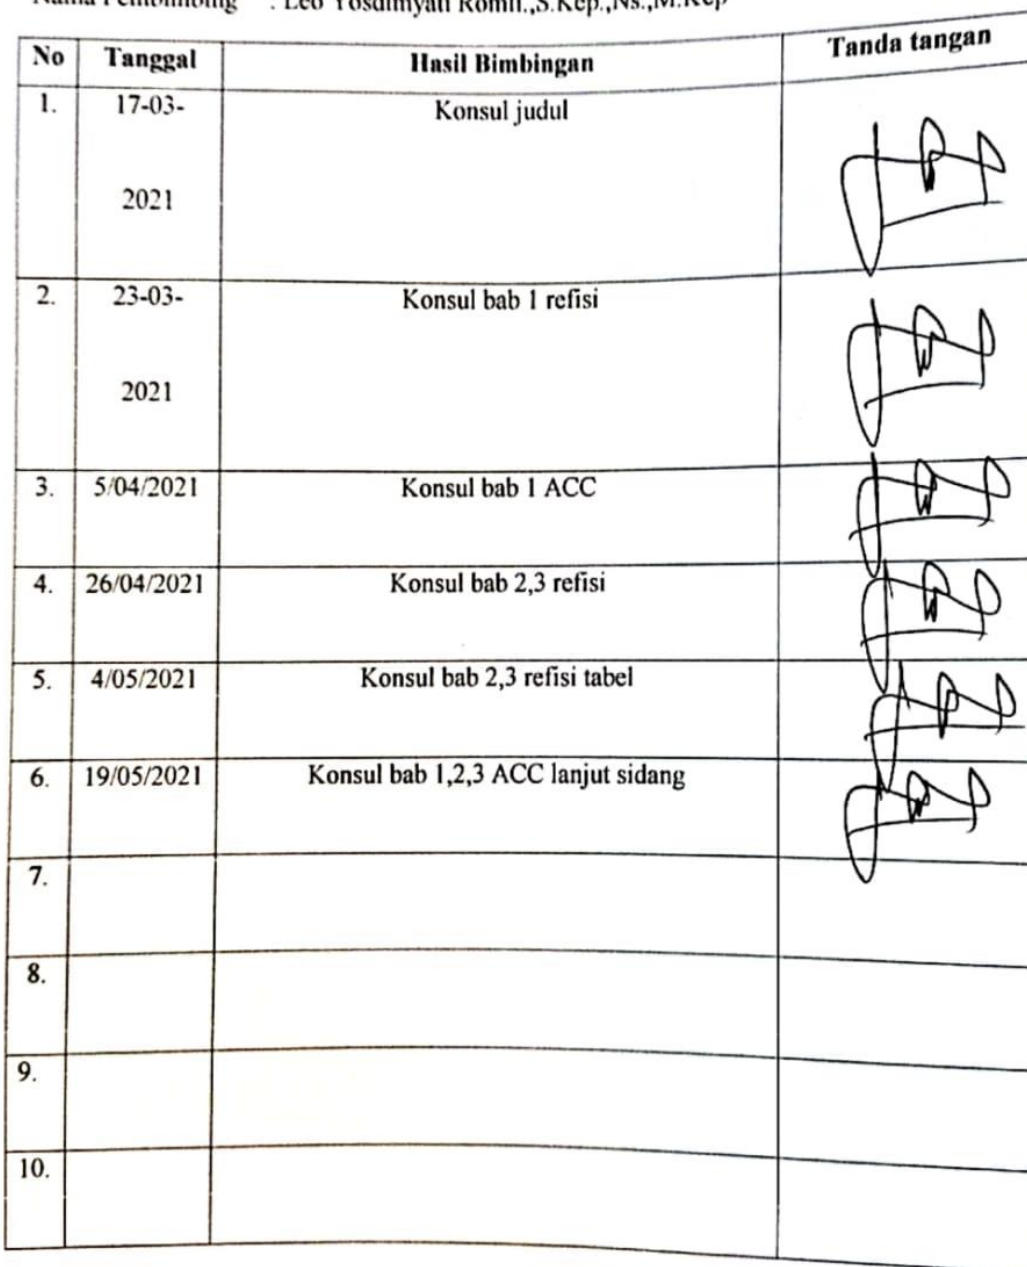 Nama Pembimbing : Leo Yosdimyati Romli.,S.Kep.,Ns.,M.Kep
No Tanggal Hasil Bimbingan Tanda tangan
1. 17-03- Konsul judul
2021
2. 23-03- Konsul bab 1 refisi
2021
3. 5/04/2021 Konsul bab 1 ACC
4. 26/04/2021 Konsul bab 2,3 refisi
5. 4/05/2021 Konsul bab 2,3 refisi tabel
6. 19/05/2021 Konsul bab 1,2,3 ACC lanjut sidang
7.
8.
9.
10.